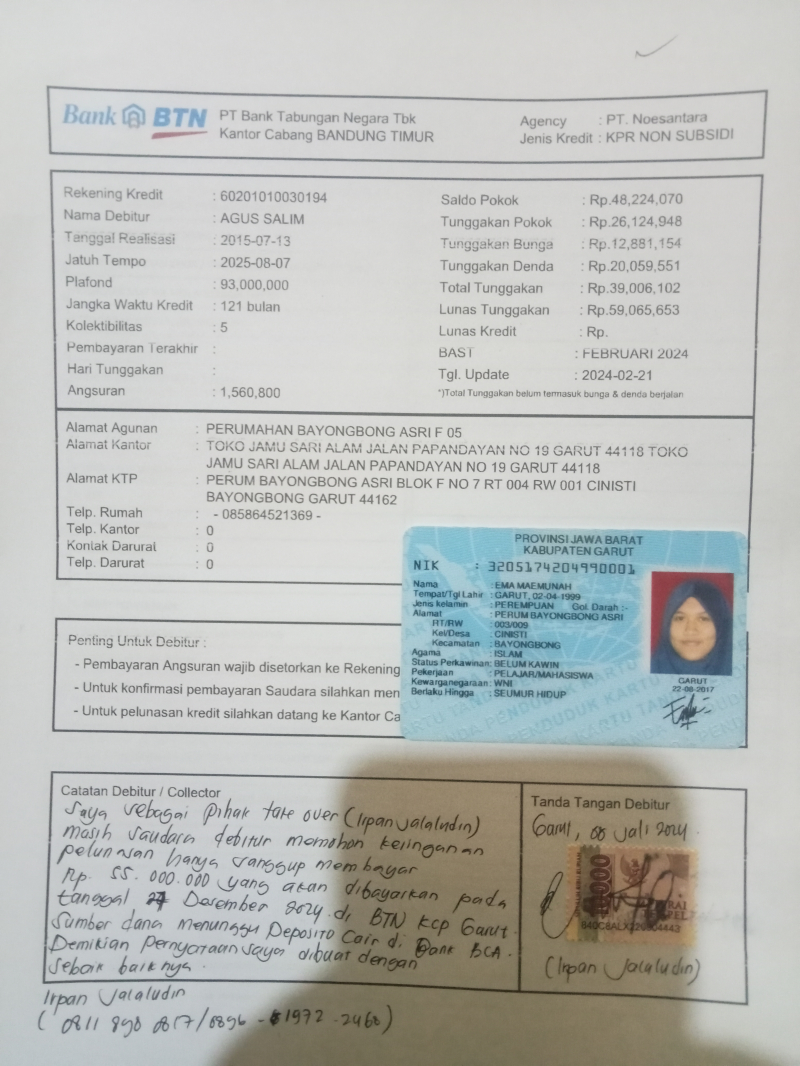 Bank BTN PT Bank Tabungan Negara Tbk
Kantor Cabang BANDUNG TIMUR
Agency : PT. Noesantara
Jenis Kredit : KPR NON SUBSIDI
Rekening Kredit : 60201010030194
Nama Debitur : AGUS SALIM
Tanggal Realisasi : 2015-07-13
Jatuh Tempo : 2025-08-07
Plafond : 93,000,000
Jangka Waktu Kredit : 121 bulan
Kolektibilitas : 5
Pembayaran Terakhir :
Hari Tunggakan :
Angsuran : 1,560,800
Saldo Pokok : Rp.48,224,070
Tunggakan Pokok : Rp.26,124,948
Tunggakan Bunga : Rp.12,881,154
Tunggakan Denda : Rp.20,059,551
Total Tunggakan : Rp.39,006,102
Lunas Tunggakan : Rp.59,065,653
Lunas Kredit : Rp.
BAST : FEBRUARI 2024
Tgl. Update : 2024-02-21
*)Total Tunggakan belum termasuk bunga & denda berjalan
Alamat Agunan : PERUMAHAN BAYONGBONG ASRI F 05
Alamat Kantor : TOKO JAMU SARI ALAM JALAN PAPANDAYAN NO 19 GARUT 44118 TOKO
JAMU SARI ALAM JALAN PAPANDAYAN NO 19 GARUT 44118
Alamat KTP : PERUM BAYONGBONG ASRI BLOK F NO 7 RT 004 RW 001 CINISTI
BAYONGBONG GARUT 44162
Telp. Rumah : - 085864521369 -
Telp. Kantor : 0
Kontak Darurat : 0
Telp. Darurat : 0
PROVINSI JAWA BARAT
KABUPATEN GARUT
NIK : 3205174204990001
Nama : EMA MAEMUNAH
Tempat/Tgl Lahir : GARUT, 02-04-1999
Jenis kelamin : PEREMPUAN Gol. Darah :-
Alamat : PERUM BAYONGBONG ASRI
RT/RW : 003/009
Kel/Desa : CINISTI
Kecamatan : BAYONGBONG
Agama : ISLAM
Status Perkawinan: BELUM KAWIN
Pekerjaan : PELAJAR/MAHASISWA
Kewarganegaraan: WNI
Berlaku Hingga : SEUMUR HIDUP
GARUT
22-08-2017
Penting Untuk Debitur :
- Pembayaran Angsuran wajib disetorkan ke Rekening
- Untuk konfirmasi pembayaran Saudara silahkan men
- Untuk pelunasan kredit silahkan datang ke Kantor Ca
Catatan Debitur / Collector
Saya sebagai pihak take over (Irpan Jalaludin)
masih saudara debitur memohon keringanan
pelunasan hanya sanggup membayar
Rp. 55.000.000 yang akan dibayarkan pada
tanggal Desember 2024 di BTN KCP Garut.
Sumber dana menunggu Deposito Cair di Bank BCA.
Demikian Pernyataan saya dibuat dengan
sebaik baiknya.
Tanda Tangan Debitur
Garut, 08 Juli 2024.
(Irpan Jalaludin)
Irpan Jalaludin